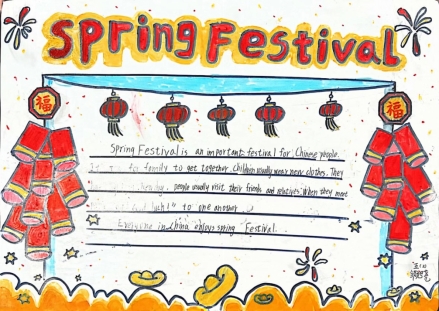 Spring Festival
福
福
Spring Festival is an important festival for Chinese people.
for family to get together. Children usually wear new clothes. They
people usually visit their friends and relatives. When they meet
luck!" to one another.
Everyone in China enjoys spring Festival.